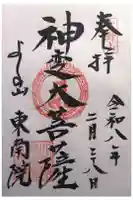 奉拝
令和八年
二月二八日
神変大菩薩
よしの山
東南院